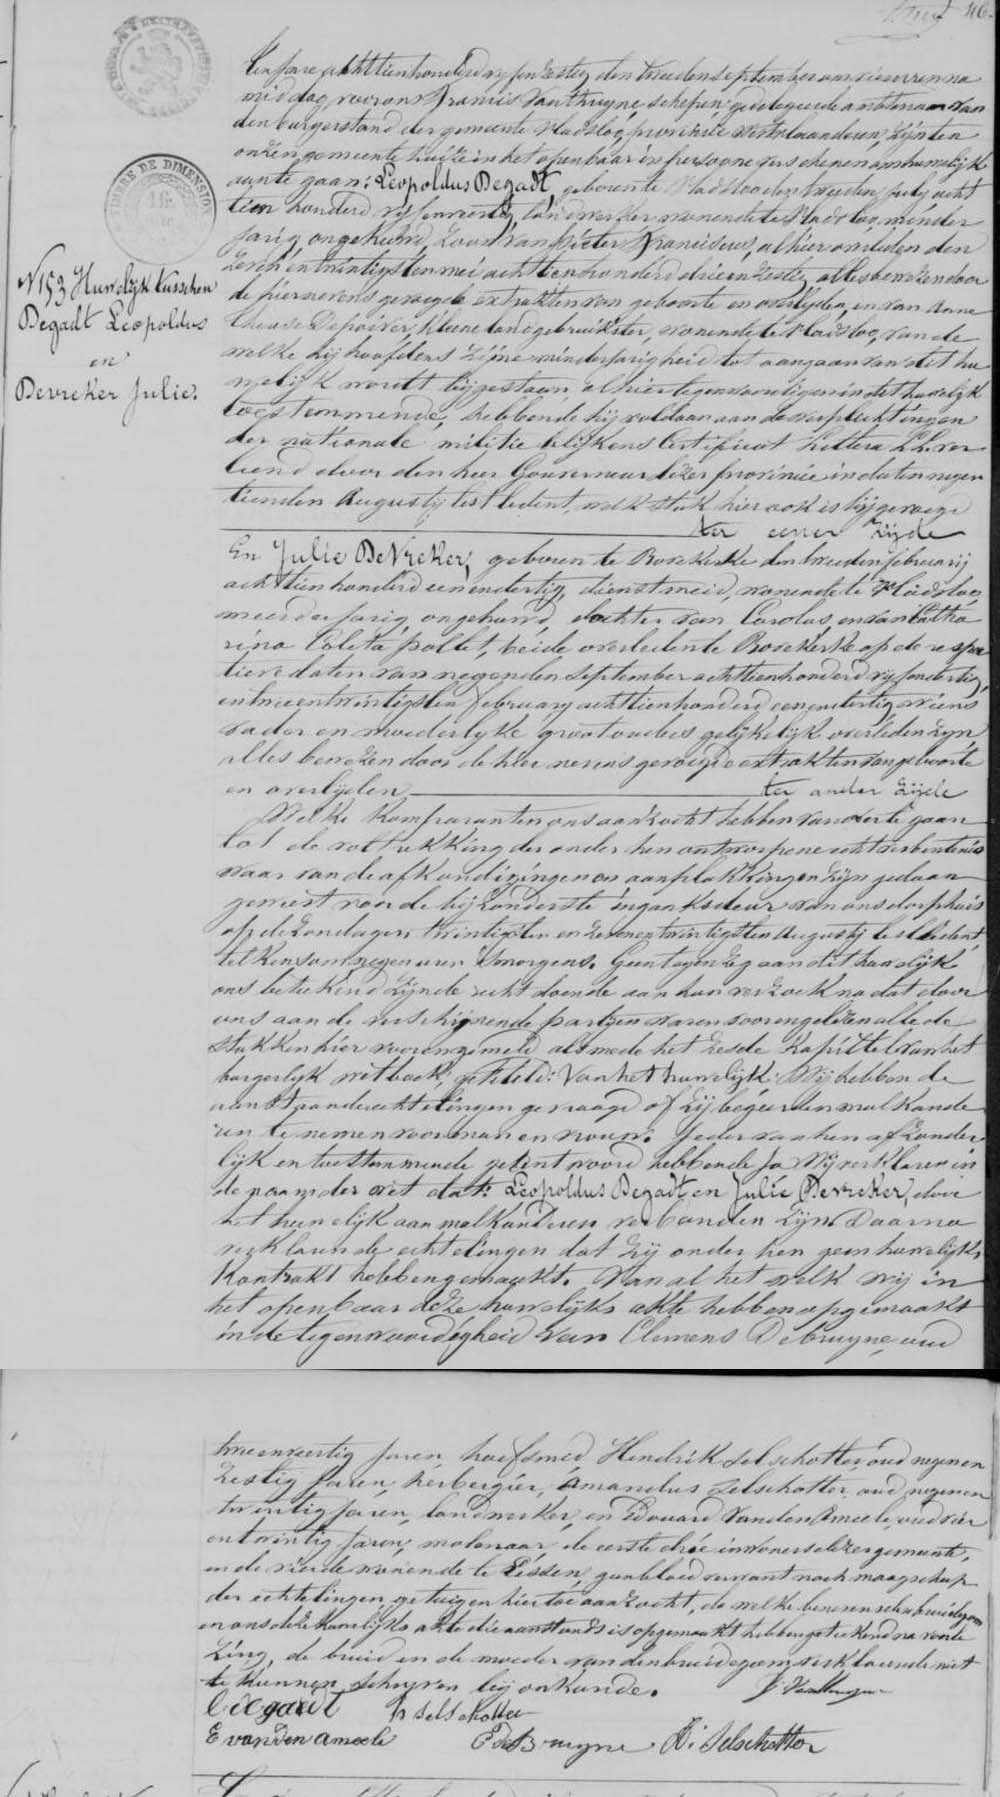 46
TIMBRE DE DIMENSION
N 153 Huwelijk tusschen
Degadt Leopoldus
en
Devreker Julie.
Ten jare achttienhonderd vyfenzestig den tweeden september om vier uren na
middag, voor ons Francis Vanthuyne schepen gedelegueerde ambtenaar van
den burgerstand der gemeente Vladsloo, provincie Westvlaanderen, zijn ten
onzen gemeente huize in het openbaar in persoone verschenen om huwelijk
aan te gaan: Leopoldus Degadt, geboren te Vladsloo den tweeden july acht
tien honderd vyfenveertig, landwerker wonende te Vladsloo, minder
jarig, ongehuwd, zoon van Pieter Franciscus, alhier overleden den
zevenentwintigsten mei achttienhonderd drieenzestig, alles bewezen door
de hiernevens gevoegde extrakten van geboorte en overlijden, en van Anne
Therese Depoiver, kleine landgebruikster, wonende te Vladsloo, van de
welke hij hoofdens zijne minderjarigheid tot aangaan van dit hu
welijk wordt bijgestaan, alhier tegenwoordig en in dit huwelijk
toestemmende, hebbende hij voldaan aan de verplichtingen
der nationale militie blijkens Certificaat Littera LL ver
leend door den heer Gouverneur dezer provincie in daten negen
tienden Augusty lest ledent, welk stuk hier ook is bijgevoegd
ter eener zijde
En Julie DeVreker, geboren te Bovekerke den tweeden february
achttienhonderd eenendertig, dienstmeid, wonende te Vladsloo,
meerderjarig, ongehuwd, dochter van Carolus, en van Catha
rina Coleta pollet, beide overleden te Bovekerke op de respec
tieve daten van negenden september achttienhonderd vyfendertig,
en tweeentwintigsten february achttienhonderd eenendertig, wiens
vader en moederlyke grootouders gelijkelijk overleden zyn
alles bewezen door de hier nevens gevoegde extrakten van geboorte
en overlijden ter ander zijde
Welke komparanten ons aanzocht hebben van voor te gaan
tot de voltrekking der onder hen ontworpene echtverbintenis
waar van de afkondigingen en aanplakkingen zijn gedaan
geweest voor de bijzonderste ingangsdeur van ons dorphuis
op de zondagen twintigsten en zevenentwintigsten Augusty lest ledent,
telkens om negen uren 's morgens. Geen tegenzeg aan dit huwelijk
ons beteekend zijnde recht doende aan hun verzoek na dat door
ons aan de verschijnende partyen waren voorengelezen alle de
stukken hier vooren gemeld alsmede het zesde Kapittel van het
burgerlijk wetboek, getiteld: Van het huwelijk. Wij hebben de
aanstaande echtelingen gevraagd of zij begeerden malkande
ren te nemen voor man en vrouw. Ieder van hen afzonder
lijk en toestemmende geantwoord hebbende Ja Wij verklaren in
de naam der wet dat: Leopoldus Degadt en Julie Devreker, door
het huwelijk aan malkanderen verbonden zijn. Daarna
verklaren de echtelingen dat zij onder hen geen huwelijks
kontrakt hebben gemaakt. Van al het welk wij in
het openbaar deze huwelijks akte hebben opgemaakt
in de tegenwoordigheid van Clemens Debruyne, oud
tweeenveertig jaren, hoefsmed, Hendrik Selschotter, oud negenen
zestig jaren, herbergier, Amandus Selschotter, oud negenen
twintig jaren, landwerker, en Edouard Vanden Ameele, oud vier
entwintig jaren, molenaar, de eerste drie inwoners dezer gemeente,
en de vierde wonende te Eessen, geen bloedverwant noch maagschap
der echtelingen, getuigen hiertoe aanzocht, de welke benevens den bruidegom
en ons deze huwelijks akte die aanstonds is opgemaakt hebben geteekend na voorle
zing, de bruid en de moeder van den bruidegom verklarende niet
te kunnen schryven bij onkunde.
L Degadt H Selschotter
E vanden Ameele C deBruyne A. Selschotter